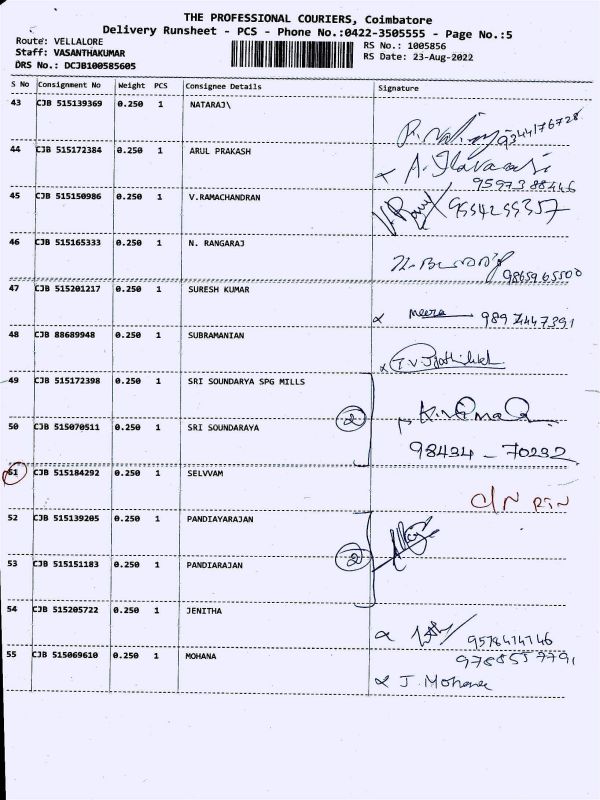 THE PROFESSIONAL COURIERS, Coimbatore
Delivery Runsheet - PCS - Phone No.:0422-3505555 - Page No.:5
Route: VELLALORE
RS No.: 1005856
Staff: VASANTHAKUMAR
RS Date: 23-Aug-2022
DRS No.: DCJB100585605
S No Consignment No Weight PCS Consignee Details Signature
43 CJB 515139369 0.250 1 NATARAJ\ 9344176728
44 CJB 515172384 0.250 1 ARUL PRAKASH
9597388446
45 CJB 515150986 0.250 1 V.RAMACHANDRAN
46 CJB 515165333 0.250 1 N. RANGARAJ
9865965500
47 CJB 515201217 0.250 1 SURESH KUMAR
meera 9897447391
48 CJB 88689948 0.250 1 SUBRAMANIAN
49 CJB 515172398 0.250 1 SRI SOUNDARYA SPG MILLS
2
50 CJB 515070511 0.250 1 SRI SOUNDARAYA
98434 - 70232
51 CJB 515184292 0.250 1 SELVVAM
C/N RTN
52 CJB 515139205 0.250 1 PANDIAYARAJAN
2
53 CJB 515151183 0.250 1 PANDIARAJAN
54 CJB 515205722 0.250 1 JENITHA
9578414146
55 CJB 515069610 0.250 1 MOHANA 9788557791
J. Mohana